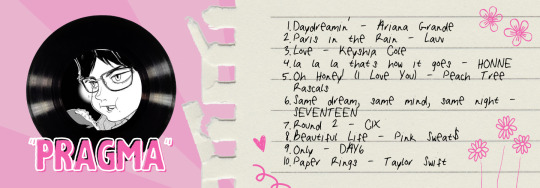 "PRAGMA"
1. Daydreamin' - Ariana Grande
2. Paris in the Rain - Lauv
3. Love - Keyshia Cole
4. la la la that's how it goes - HONNE
5. Oh Honey (I Love You) - Peach Tree
Rascals
6. Same dream, same mind, same night -
SEVENTEEN
7. Round 2 - CIX
8. Beautiful Life - Pink Sweat$
9. Only - DAY6
10. Paper Rings - Taylor Swift